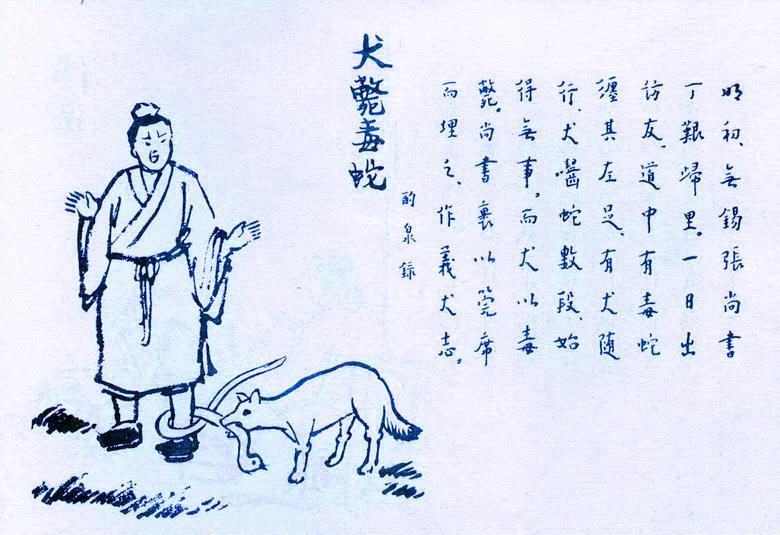 犬斃毒蛇
明初、無錫張尚書
丁艱歸里。一日出
訪友、道中有毒蛇
纏其左足、有犬隨
行、犬嚙蛇數段、始
得無事。而犬以毒
斃。尚書裹以筦席
而埋之、作義犬志。
酌泉錄